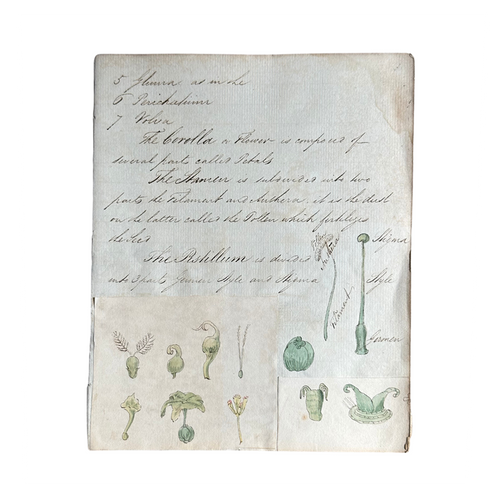 5 Gluma as in the
6 Perichatium
7 Volva
The Corolla or Flower is composed of
several parts called Petals
The Stamen is subdivided into two
parts the Filament and Anthera, it is the dust
on the latter called the Pollen which fertilizes
the Seed
The Pistillum is divided
into 3 parts Germen Style and Stigma
Anthera
Filament
Stigma
Style
Germen